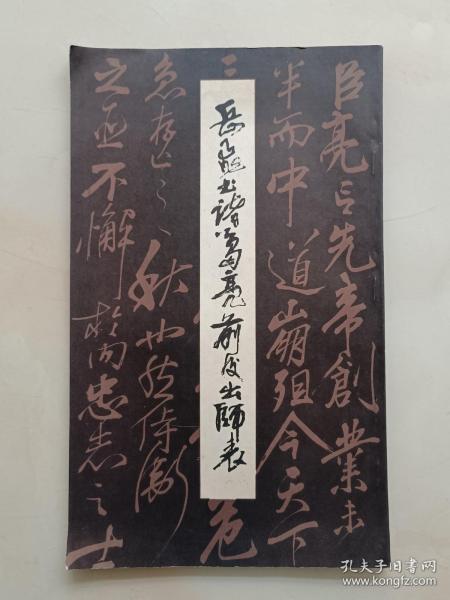 臣亮言先帝創業未
半而中道崩殂今天下
三
危
急存亡之秋也然侍衛
之臣不懈於內忠志之士
岳飛書諸葛亮前後出師表
孔夫子旧书网
www.kongfz.com